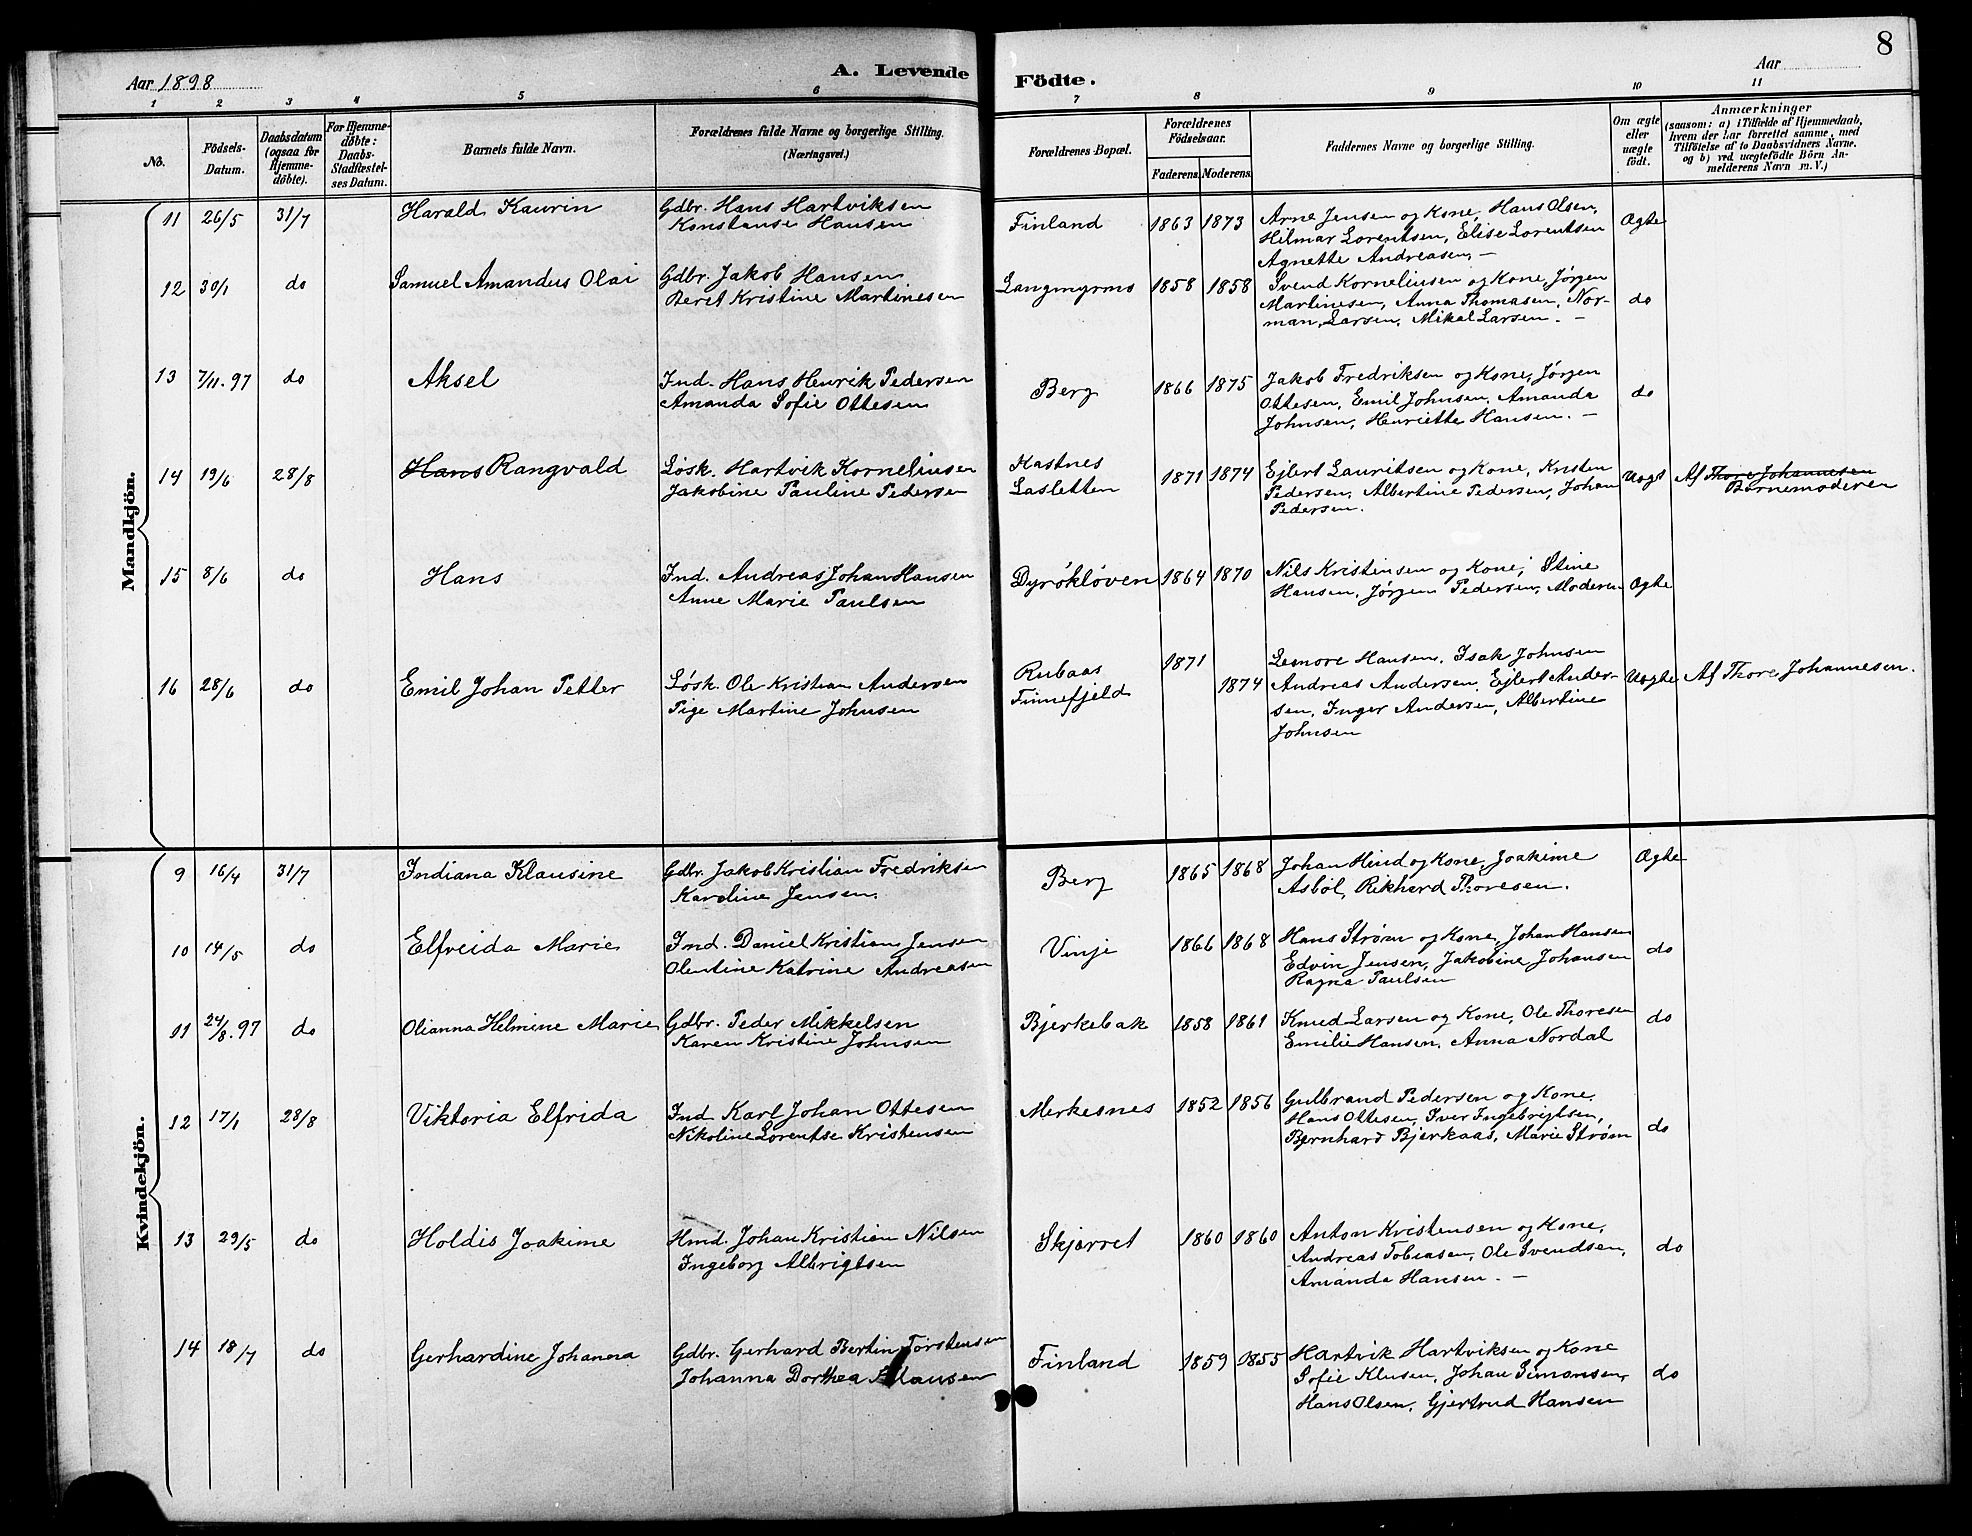 8
Aar 1898
A. Levende Födte.
Aar
1 2 3 4 5 6 7 8 9 10 11
No.
Födsels-Datum.
Daabsdatum (ogsaa for Hjemme-döbte).
For Hjemme-döbte: Daabs-Stadfæstel-ses Datum.
Barnets fulde Navn.
Forældrenes fulde Navne og borgerlige Stilling. (Næringsvei.)
Forældrenes Bopæl.
Forældrenes Födselsaar.
Faderens. Moderens.
Faddernes Navne og borgerlige Stilling.
Om ægte eller uægte födt.
Anmærkninger
(saasom: a) i Tilfælde af Hjemmedaab,
hvem der har forrettet samme, med
Tilföielse af to Daabsvidners Navne.
og b) ved uægtefödte Börn An-
melderens Navn m. V.)
Mandkjön.
11 26/5 31/7 Harald Kaurin
Gdbr. Hans Hartviksen
Konstanse Hansen
Finland 1863 1873
Arne Jensen og Kone, Hans Olsen,
Hilmar Lorentsen, Elise Lorentsen
Agnette Andreasen, —
Ægte
12 30/1 do Samuel Amandus Olai
Gdbr. Jakob Hansen
Beret Kristine Martinesen
Langmyrmo 1858 1858
Svend Korneliusen og Kone, Jørgen
Martinesen, Anna Thomasen, Nor-
man Larsen, Mikal Larsen. —
do
13 7/11.97 do Aksel
Ind. Hans Henrik Pedersen
Amanda Sofie Ottesen
Berg 1866 1875
Jakob Fredriksen og Kone, Jørgen
Ottesen, Emil Johnsen, Amanda
Johnsen, Henriette Hansen. —
do
14 19/6 28/8 Hans Rangvald
Løsk. Hartvik Korneliusen
Jakobine Pauline Pedersen
Kastnes
Lasletten
1871 1874
Ejlert Lauritsen og Kone, Kristen
Pedersen, Albertine Pedersen, Johan
Pedersen.
Uægt
Af Thore Johannesen
Barnemoderen
15 8/6 do Hans
Ind. Andreas Johan Hansen
Anne Marie Paulsen
Dyrökløven 1864 1870
Nils Kristensen og Kone, Stine
Hansen, Jørgen Pedersen, Moderen
Ægte
16 28/6 do Emil Johan Petter
Løsk. Ole Kristian Andersen
Pige Martine Johnsen
Rubaas
Finnefjeld
1871
1874
Leonore Hansen, Isak Johnsen
Andreas Andersen, Ejlert Ander-
sen, Inger Andersen, Albertine
Johnsen
Uægte
Af Thore Johannesen.
Kvindekjön.
9 16/4 31/7 Indiana Klausine
Gdbr. Jakob Kristian Fredriksen
Karoline Jensen.
Berg 1865 1868
Johan Hind og Kone, Joakime
Asbøl, Rikhard Thoresen.
Ægte
10 14/5 do Elfreida Marie
Ind. Daniel Kristian Jensen
Olentine Katrine Andreasen
Vinje 1866 1868
Hans Strøm og Kone, Johan Hansen
Edvin Jensen, Jakobine Johansen
Ragna Paulsen
do
11 24/8.97 do Olianna Helmine Marie
Gdbr. Peder Mikkelsen
Karen Kristine Johnsen
Bjerkebak 1858 1861
Knud Larsen og Kone, Ole Thoresen
Emilie Hansen, Anna Nordal
do
12 17/1 28/8 Viktoria Elfrida
Ind Karl Johan Ottesen
Nikoline Lorentse Kristensen
Merkesnes 1852 1856
Gulbrand Pedersen og Kone,
Hans Ottesen, Iver Ingebrigtsen,
Bernhard Bjerkaas, Marie Strøm
do
13 29/5 do Holdis Joakime
Hmd. Johan Kristian Nilsen
Ingeborg Albrigtsen
Skjørret 1860 1860
Anton Kristensen og Kone,
Andreas Tobiasen, Ole Svendsen,
Amanda Hansen. —
do
14 18/7 do Gerhardine Johanna
Gdbr. Gerhard Bertin Torstensen
Johanna Dorthea Klausen
Finland 1859 1855
Hartvik Hartviksen og Kone
Sofie Klusen, Johan Simonsen,
Hans Olsen, Gjertrud Hansen
do